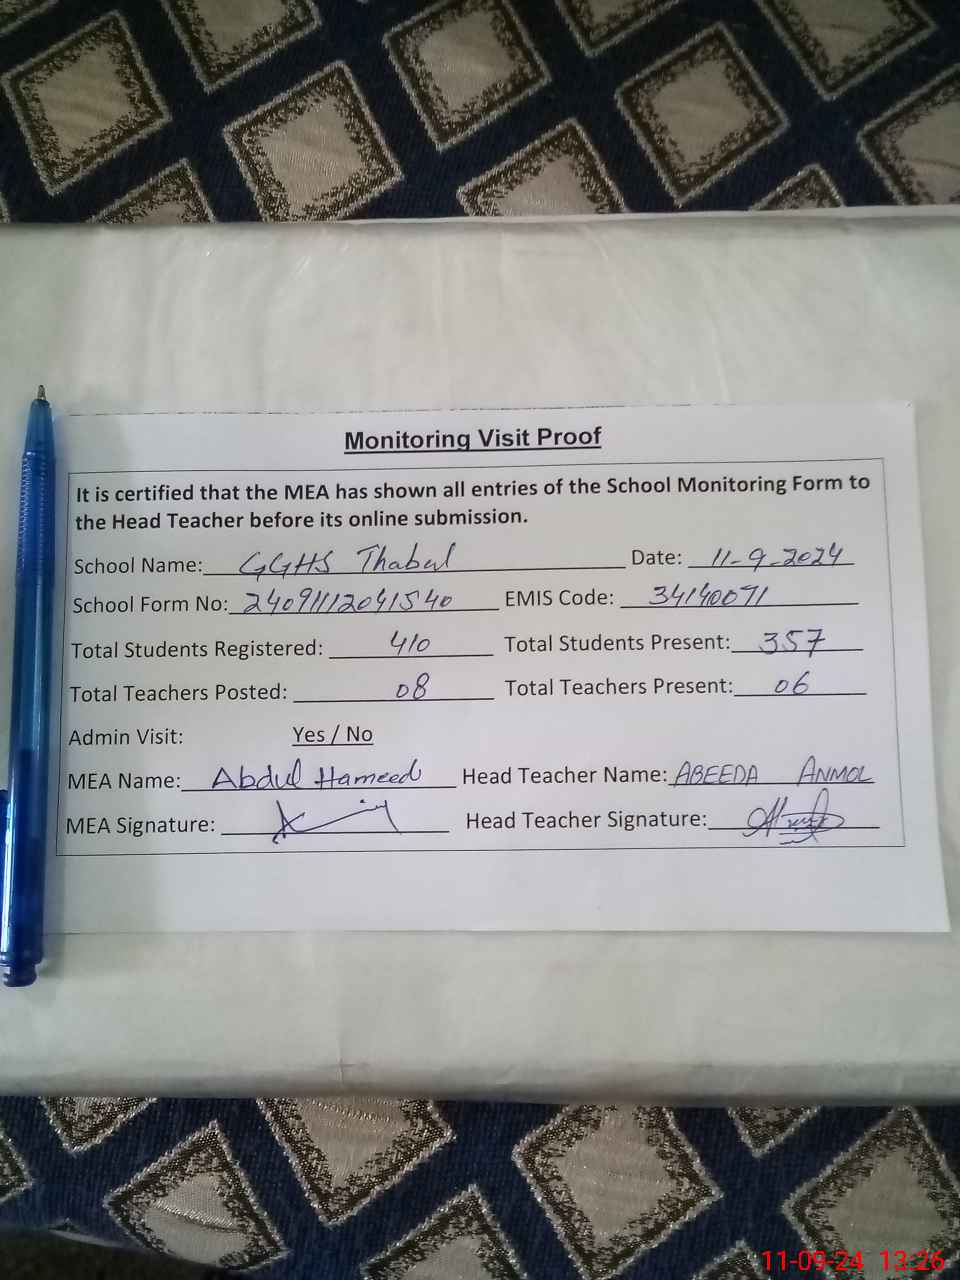 Monitoring Visit Proof
It is certified that the MEA has shown all entries of the School Monitoring Form to
the Head Teacher before its online submission.
School Name: GGHS Thabal Date: 11-9-2024
School Form No: 24091112041540 EMIS Code: 34140071
Total Students Registered: 410 Total Students Present: 357
Total Teachers Posted: 08 Total Teachers Present: 06
Admin Visit: Yes / No
MEA Name: Abdul Hameed Head Teacher Name: ABEEDA ANMOL
MEA Signature: Head Teacher Signature:
11-09-24 13:26